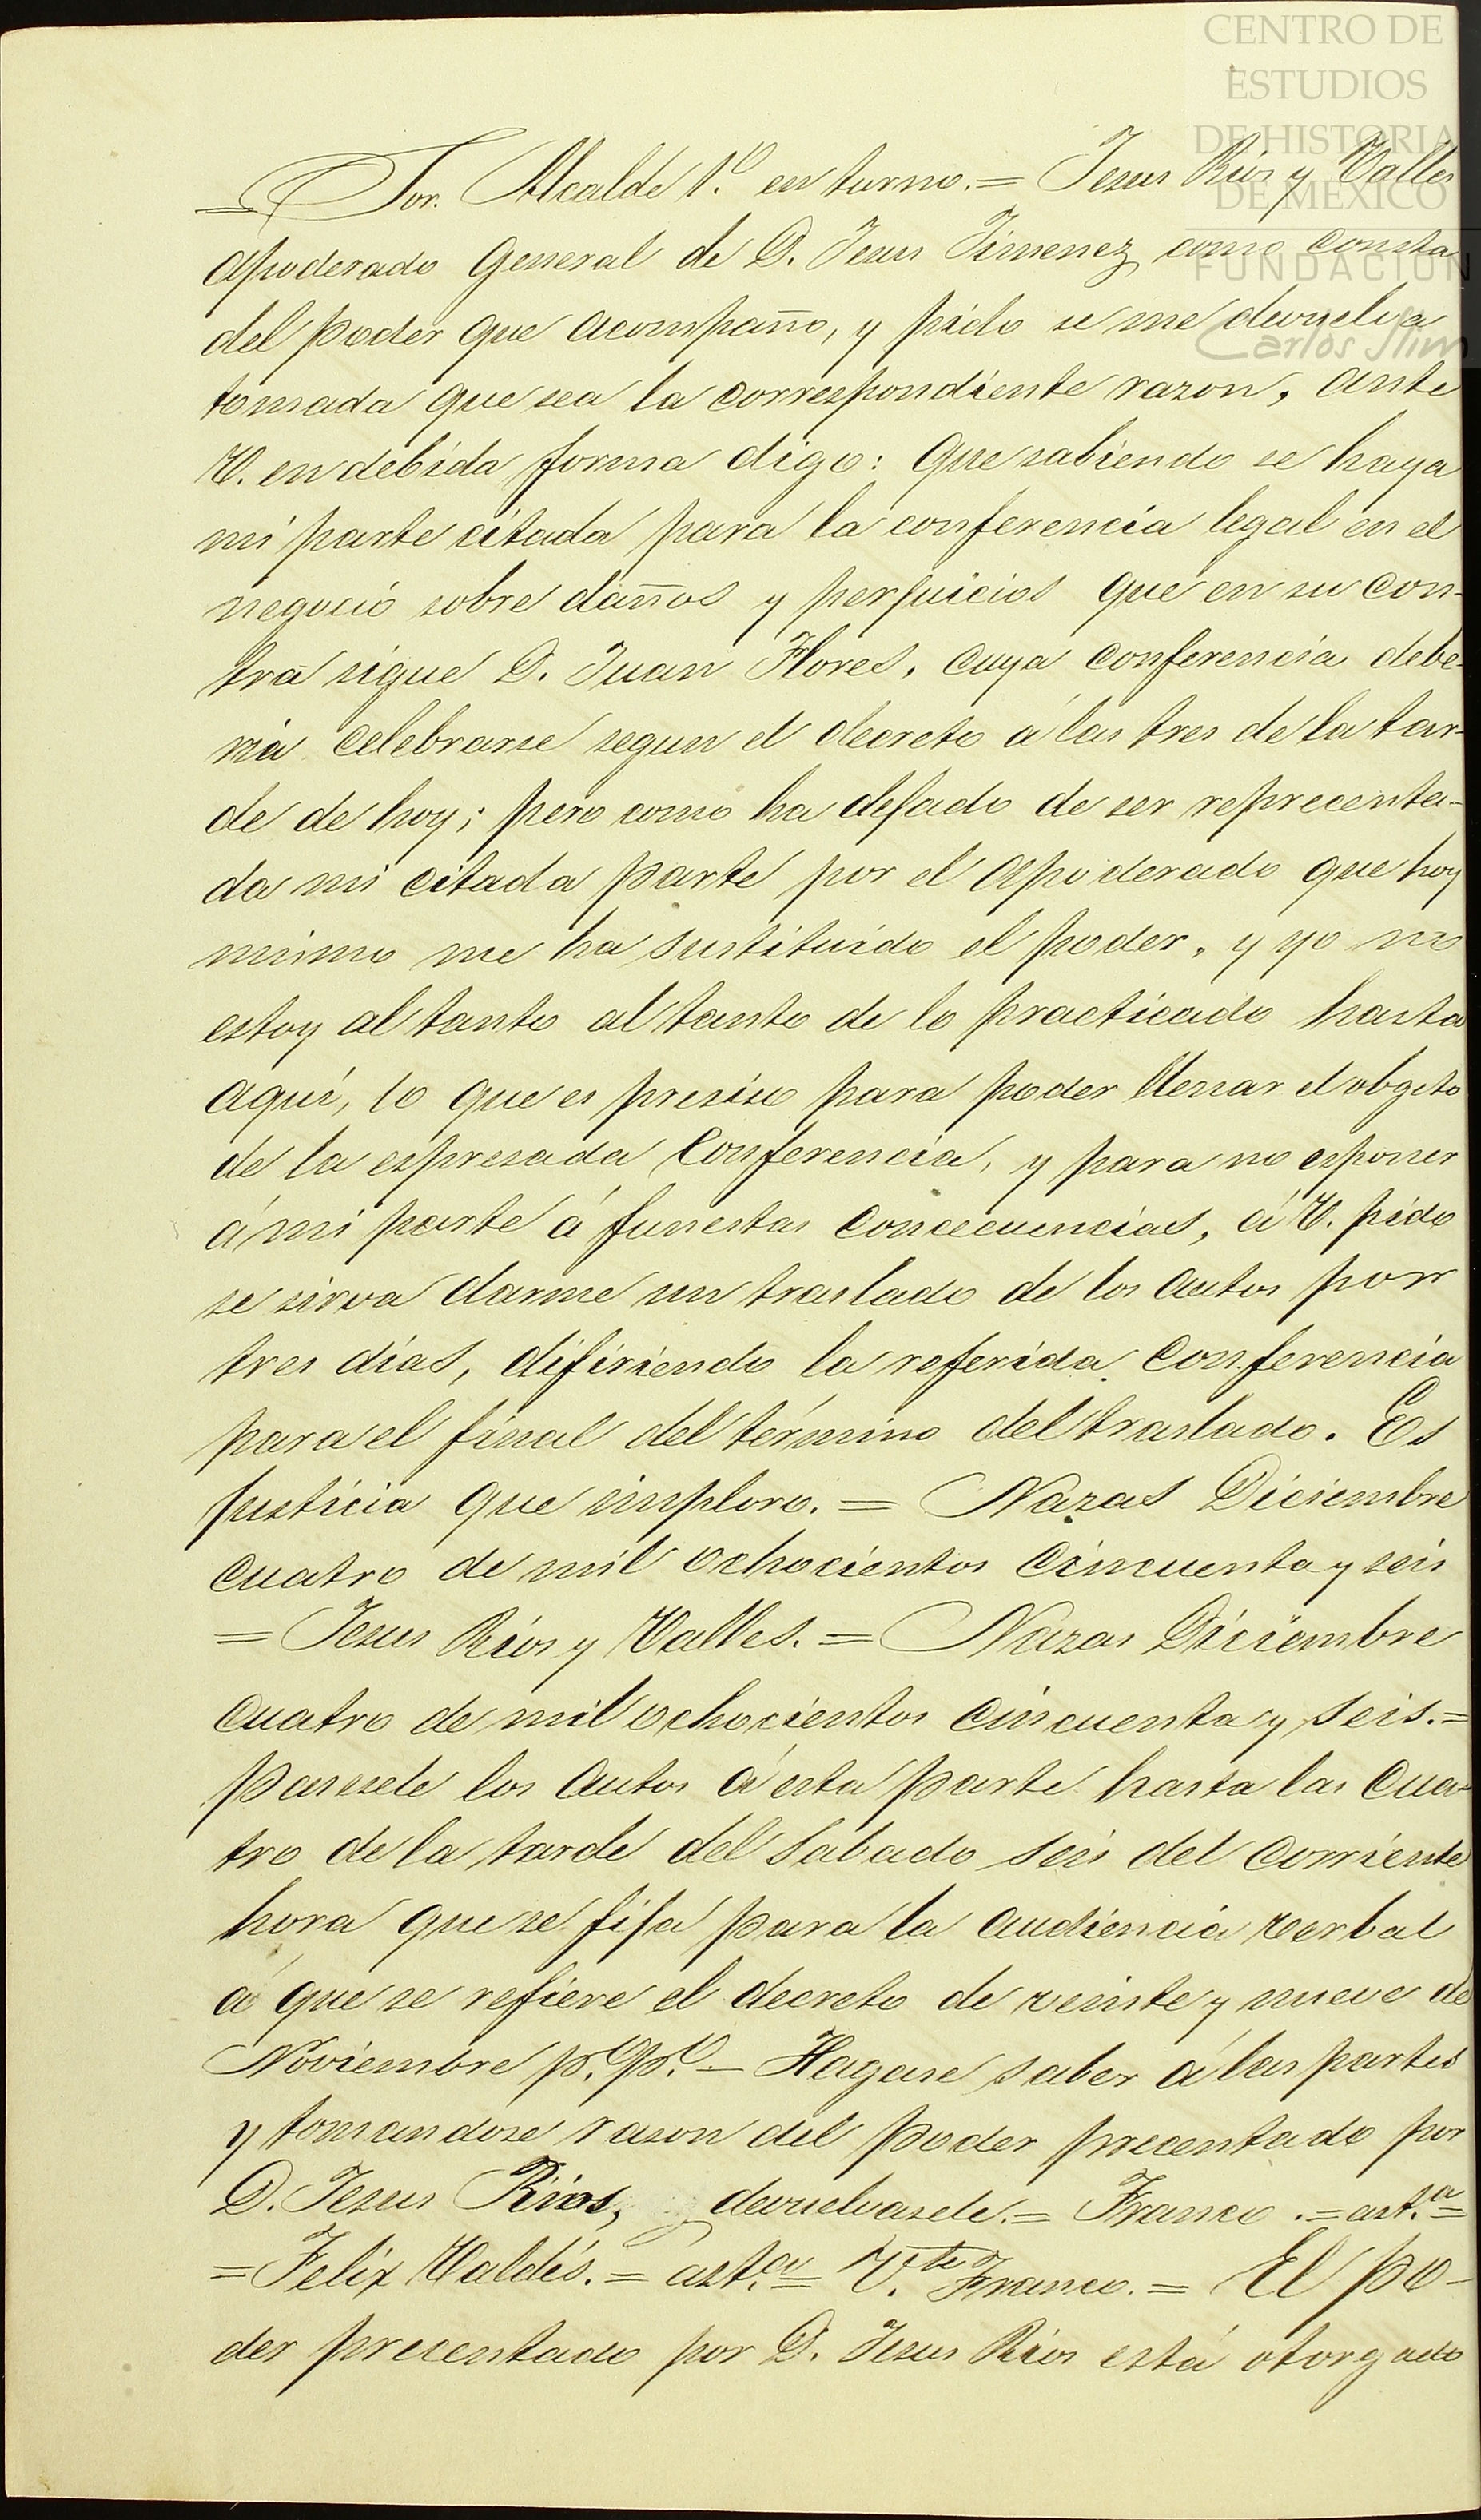 CENTRO DE
ESTUDIOS
DE HISTORIA
DE MEXICO
FUNDACION
Carlos Slim
= Sor. Alcalde 1º. en turno. = Jesus Rios y Valles
apoderado general de D. Jesus Jimenez como consta
del poder que acompaño, y pido se me devuelva
tomada que sea la correspondiente razon, ante
V. en debida forma digo: que sabiendo se haya
mi parte citada para la conferencia legal en el
negocio sobre daños y perjuicios que en su con-
tra sigue D. Juan Flores, cuya conferencia debe-
ria celebrarse segun el decreto á las tres de la tar-
de de hoy; pero como ha dejado de ser reprecenta-
da mi citada parte por el apoderado que hoy
mismo me ha sustituido el poder, y yo no
estoy al tanto al tanto de lo practicado hasta
aquí, lo que es presiso para poder llenar el obgeto
de la espresada conferencia, y para no esponer
á mi parte á funestas concecuencias, á V. pido
se sirva darme un traslado de los autos por
tres dias, difiriendo la referida conferencia
para el final del término del traslado. Es
justicia que imploro. = Nazas Diciembre
cuatro de mil ochocientos cincuenta y seis
= Jesus Rios y Valles. = Nazas Diciembre
cuatro de mil ochocientos cincuenta y seis. =
Pasesele los autos á esta parte hasta las cua-
tro de la tarde del sabado seis del corriente
hora que se fija para la audiencia verbal
á que se refiere el decreto de veinte y nueve de
Noviembre p.º p.º - Hagase saber á las partes
y tomandose rason del poder precentado por
D. Jesus Rios, y devuelvasele. = Franco. = ast.ª =
= Felix Valdés. = ast.ª = V.te Franco. = El po-
der precentado por D. Jesus Rios está otorgado